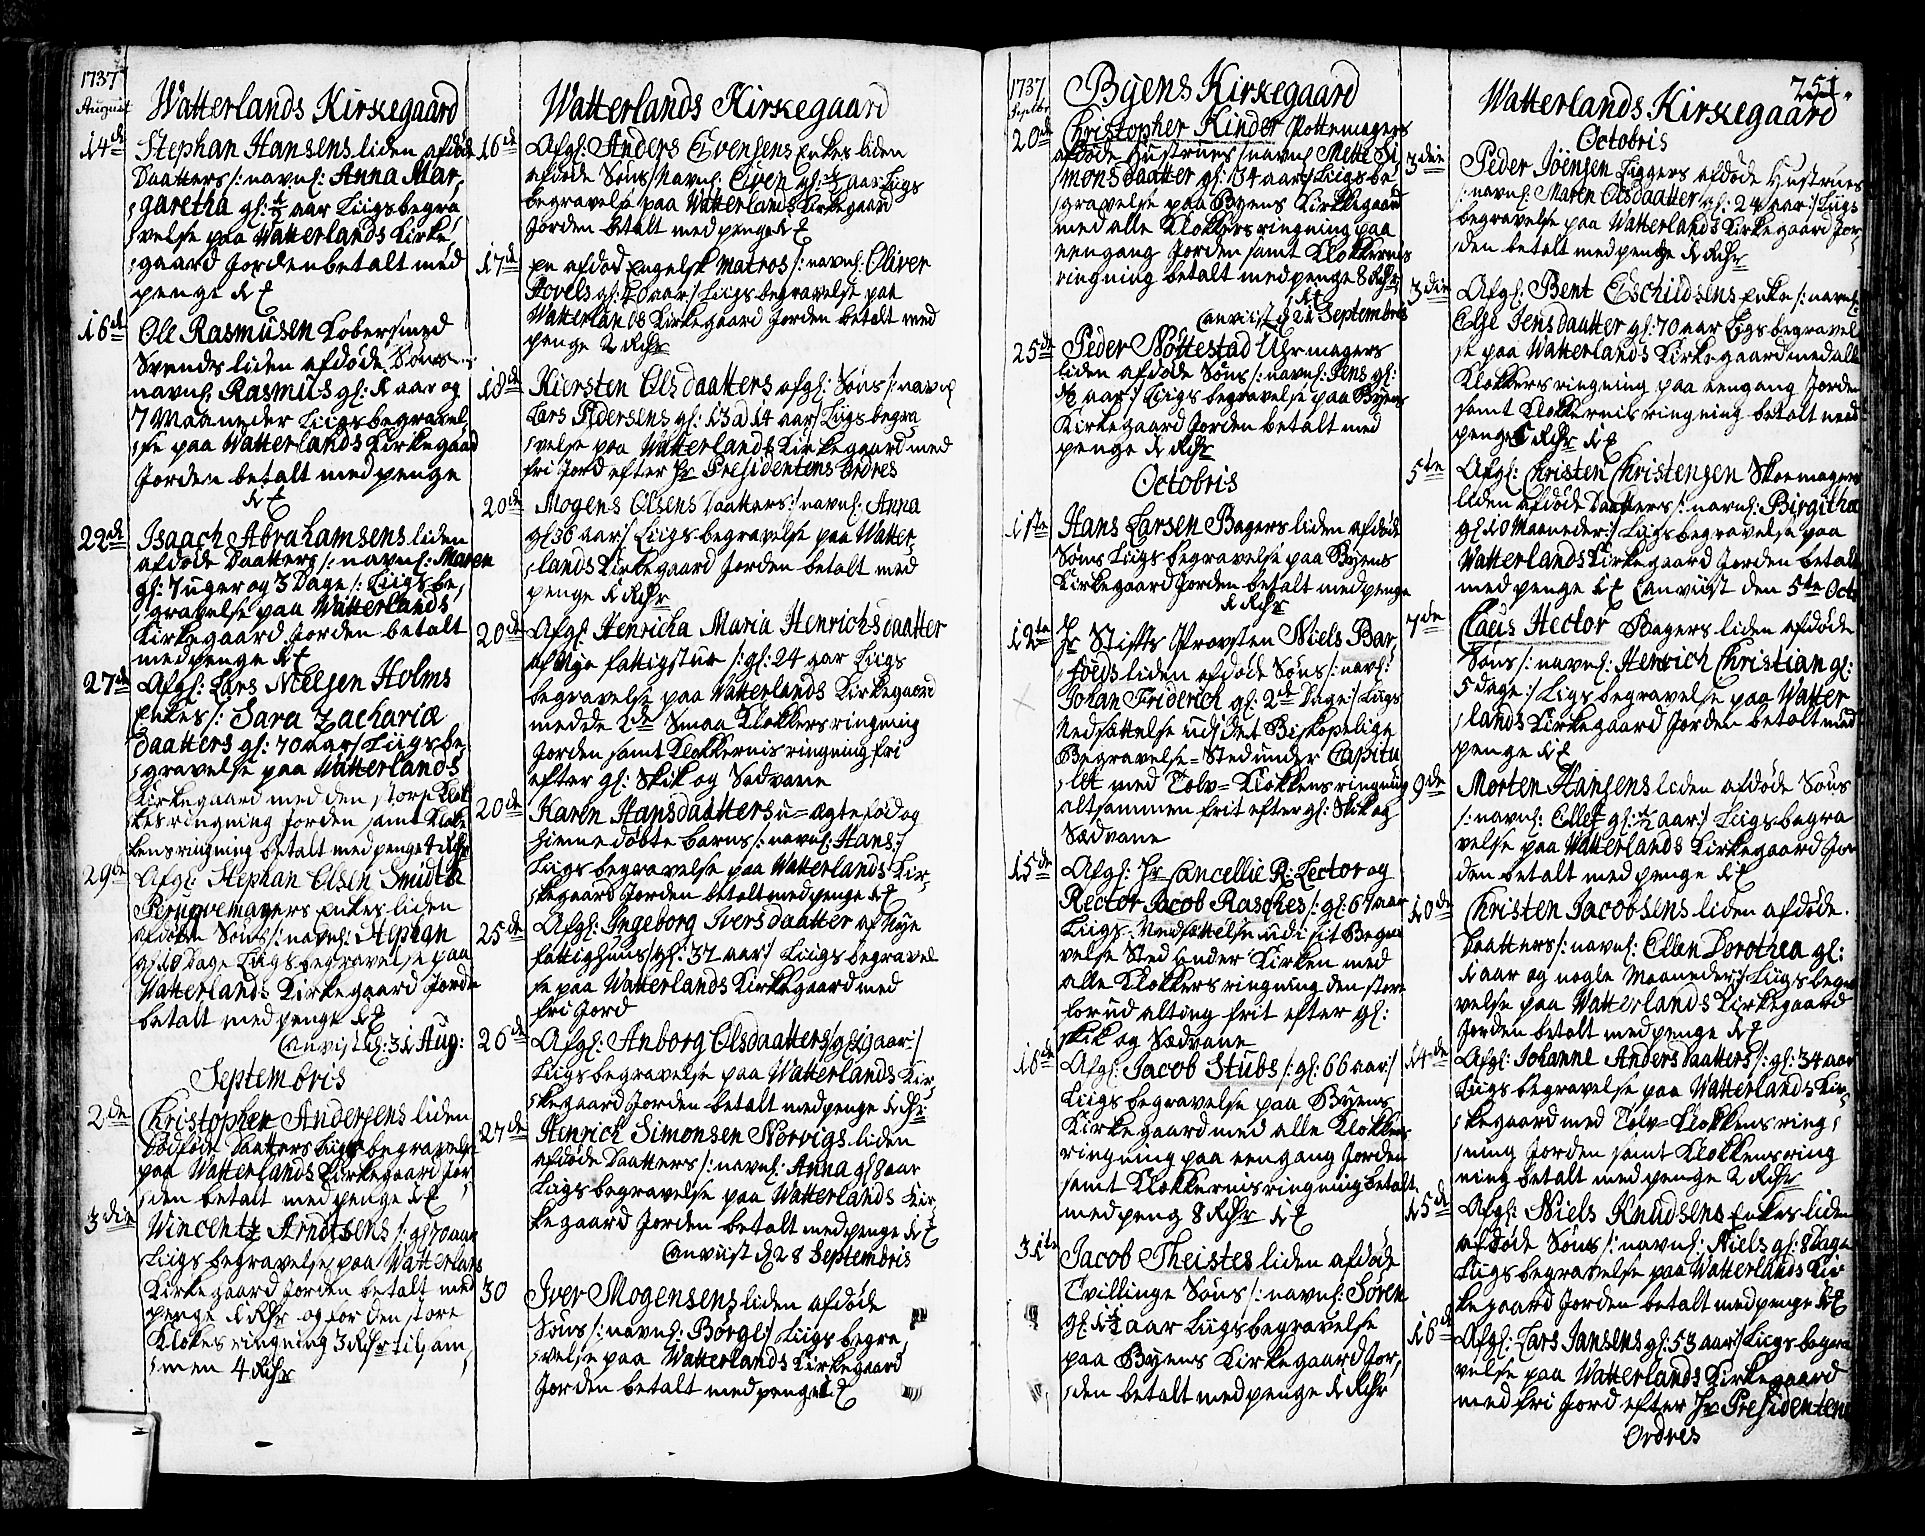 1737
August
Watterlands Kirkegaard
14de Stephan Hansens liden afdøde
Daatters /: navnl: Anna Mar,
,garetha gl: ½ aar Liigsbegra,
,velse paa Watterlands Kirke,
,gaard Jorden betalt med
penge
16de Ole Rasmusen Kobersmed
Svends liden afdøde Søns
navnl: Rasmus gl: 1 aar og
7 Maaneder Liigsbegravel,
,se paa Watterlands Kirkegaard
Jorden betalt med penge
22de Isaach Abrahamsens liden
afdøde Daatters /: navnl: Maren
gl: 7 uger og 3 Dage /: Liigsbe,
,gravelse paa Watterlands
Kirkegaard Jorden betalt
med penge
27de Afgl: Lars Nielsen Holms
Enkes /: Sara Zachariæ
daatters gl: 70 aar/ Liigsbe,
,gravelse paa Watterlands
Kirkegaard med den store Klok
kes ringning Jorden samt Klok,
kens ringning betalt med penge 4 Rdr
29de Afgl: Stephan Olsen Smidth
Peruqvemagers Enkes liden
afdøde Søns /: navnl: Stephan
gl: 18 Dage Liigsbegravelse paa
Watterlands Kirkegaard Jorden
betalt med penge
Anvist d: 31 Aug:
Septembris
2den Christopher Andersens liden
Dødføde Daatters Liigsbegravelse
paa Watterlands Kirkegaard Jor,
,den betalt med penge
3die Wincentz Arndtsens /: gl: 70 aar
Liigsbegravelse paa Watterlands
Kirkegaard Jorden betalt med
penge 1 Rdr og for den store
Klokes ringning 3 Rdr tilsam,
,men 4 Rdr
Watterlands Kirkegaard
16de Afgl: Anders Evensens Enkes liden
afdøde Søns /: Navnl: Even gl: ½ aar Liigs
begravelse paa Watterlands Kirkegaard
Jorden betalt med penge
17de En afdød Engelsk Matros /: navnl: Oliver
Hovels gl: 20 aar/ Liigsbegravelse paa
Watterlands Kirkegaard Jorden betalt med
penge 2 Rdr
18de Kiersten Olsdaatters afgl: Søns /: navnl
Lars Pedersens gl: 13 a 14 aar/ Liigsbegra
,velse paa Watterlands Kirkegaard med
fri Jord efter Hr Presidentens Ordres
20de Mogens Olsens Daatters /: navnl: Anna
gl: 36 aar/ Liigsbegravelse paa Watter,
,lands Kirkegaard Jorden betalt med
penge 1 Rdr
20de Afgl: Henricha Maria Henrichsdaatter
af Nye fattigstue /: gl: 24 aar Liigs
begravelse paa Watterlands Kirkegaard
med de 2de Smaa Klokkers ringning
Jorden samt Klokkernis ringning fri
efter gl: Skik og Sædvane
20de Karen Hansdaatters u=ægtefød og
hiemedøbte barns /: navnl: Hans:/
Liigsbegravelse paa Watterlands Kir,
,kegaard Jorden betalt med penge
25de Afgl: Ingeborg Iversdaatter af Nye
fattighuus/ gl: 37 aar:/ Liigsbegravel
se paa Watterlands Kirkegaard med
fri Jord
26de Afgl: Anborg Olsdaatters/ gl: aar:/
Liigsbegravelse paa Watterlands Kir,
,kegaard Jorden betalt med penge 1 Rdr
27de Henrich Simonsen Norvigs liden
afdøde Daatters /: navnl: Anna gl: 8 aar
Liigsbegravelse paa Watterlands Kir,
kegaard Jorden betalt med penge
Anviist d. 28 Septembris
30 Iver Mogensens liden afdøde
Søns /: navnl: Børge:/ Liigsbegra,
,velse paa Watterlands Kirkegaard
Jorden betalt med penge
1737
Septbr
Byens Kirkegaard
20de Christopher Kinder Pottemagers
afdøde Hustrues /: navnl Mette Si
,mons daatter gl: 34 aar/ Liigsbe
,gravelse paa Byens Kirkegaard
med alle Klokkers ringning paa
een gang Jorden samt Klokkernis
ringning betalt med penge 8 Rdr
Anviist d. 21 Septembris
25de Peder Nøttestad Uhrmagers
liden afdøde Søns /: navnl: Jens gl:
½ aar:/ Liigsbegravelse paa Byens
Kirkegaard Jorden betalt med
penge 1 Rdr
Octobris
11te Hans Larsen Bagers liden afdøde
Søns Liigsbegravelse paa Byens
Kirkegaard Jorden betalt med penge
1 Rdr
12te Hr Stifts Provsten Niels Bar,
,foeds liden afdøde Søns /: navnl:
Johan Friderich gl: 2de Dage:/ Liigs
Nedsættelse udi det Biskopelige
Begravelse=Sted under Capitu
,let med Tolv=Klokkens ringning
altsammen frit efter gl: Skik og
Sædvane
15de Afgl: Hr Cancellie R. Lector og
Rector Jacob Rasches /: gl: 67 aar
Liigs Nedsættelse udi sit Begra
velse Sted under Kirken med
alle Klokkers ringning den store
forud alting frit efter gl:
skik og Sædvane
16de Afgl: Jacob Stubs /: gl: 66 aar:/
Liigsbegravelse paa Byens
Kirkegaard med alle Klokkers
ringning paa een gang Jorden
samt Klokkernis ringning betalt
med peng 8 Rdr
31te Jacob Theistes liden afdøde
Tvillinge Søns /: navnl: Søren
gl: 1½ aar Liigsbegravelse
paa Byens Kirkegaard Jor,
,den betalt med penge 1 Rdr
251.
Watterlands Kirkegaard
Octobris
3die Peder Jöensen Liggers afdøde Hustrues
/: navnl: Maren Olsdaatter gl: 24 aar:/ Liigs
begravelse paa Watterlands Kirkegaard Jor,
,den betalt med penge 1 Rdr
3die Afgl: Bent Eschildsens Enke /: navnl:
Else Jensdaatter gl: 70 aar Ligsbegravel
,se paa Watterlands Kirkegaard med alle
Klokkers ringning paa een gang Jorden
samt Klokkernis ringning betalt med
penge Rdr
5te Afgl: Christen Christensen Skoemagers
liden afdøde Daatters /: navnl: Birgitha
gl: 10 Maaneder:/ Liigsbegravelse paa
Watterlands Kirkegaard Jorden betalt
med penge Anviist den 5te Octo
7de Claus Hector Bagers liden afdøde
Søns /: navnl: Henrich Christian gl:
5 Dage:/ Ligsbegravelse paa Watter
,lands Kirkegaard Jorden betalt med
penge
9de Morten Hansens liden afdøde Søns
/: navnl: Ellef gl: ½ aar:/ Liigsbegra
velse paa Watterlands Kirkegaard Jor
den betalt med penge
10de Christen Jacobsens liden afdøde
Daatters /: navnl: Ellen Dorothea gl:
1 aar og nogle Maaneder:/ Liigsbegra
velse paa Watterlands Kirkegaard
Jorden betalt med penge
14de Afgl: Johanne Andersdaatters /: gl: 34 aar
Liigsbegravelse paa Watterlands Kir,
,kegaard med Tolv=Klokkens ring,
,ning Jorden samt Klokkens ring
ning betalt med penge 2 Rdr
15de Afgl: Niels Knudsens Enkes liden
afdøde Søns /: navnl: Niels gl: 8 Dage
Liigsbegravelse paa Watterlands Kir
kegaard Jorden betalt med penge
16de Afgl: Lars Jansens gl: 53 aar:/ Liigsbegra
velse paa Watterlands Kirkegaard
med fri Jord efter Hr Presidentens
Ordres